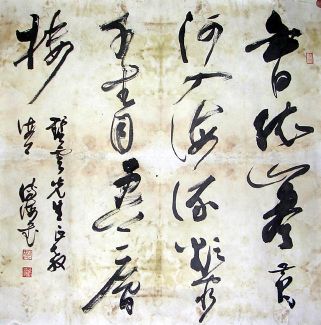 白日依山盡黃
河入海流欲窮
千里目更上一層
樓
雲先生正教